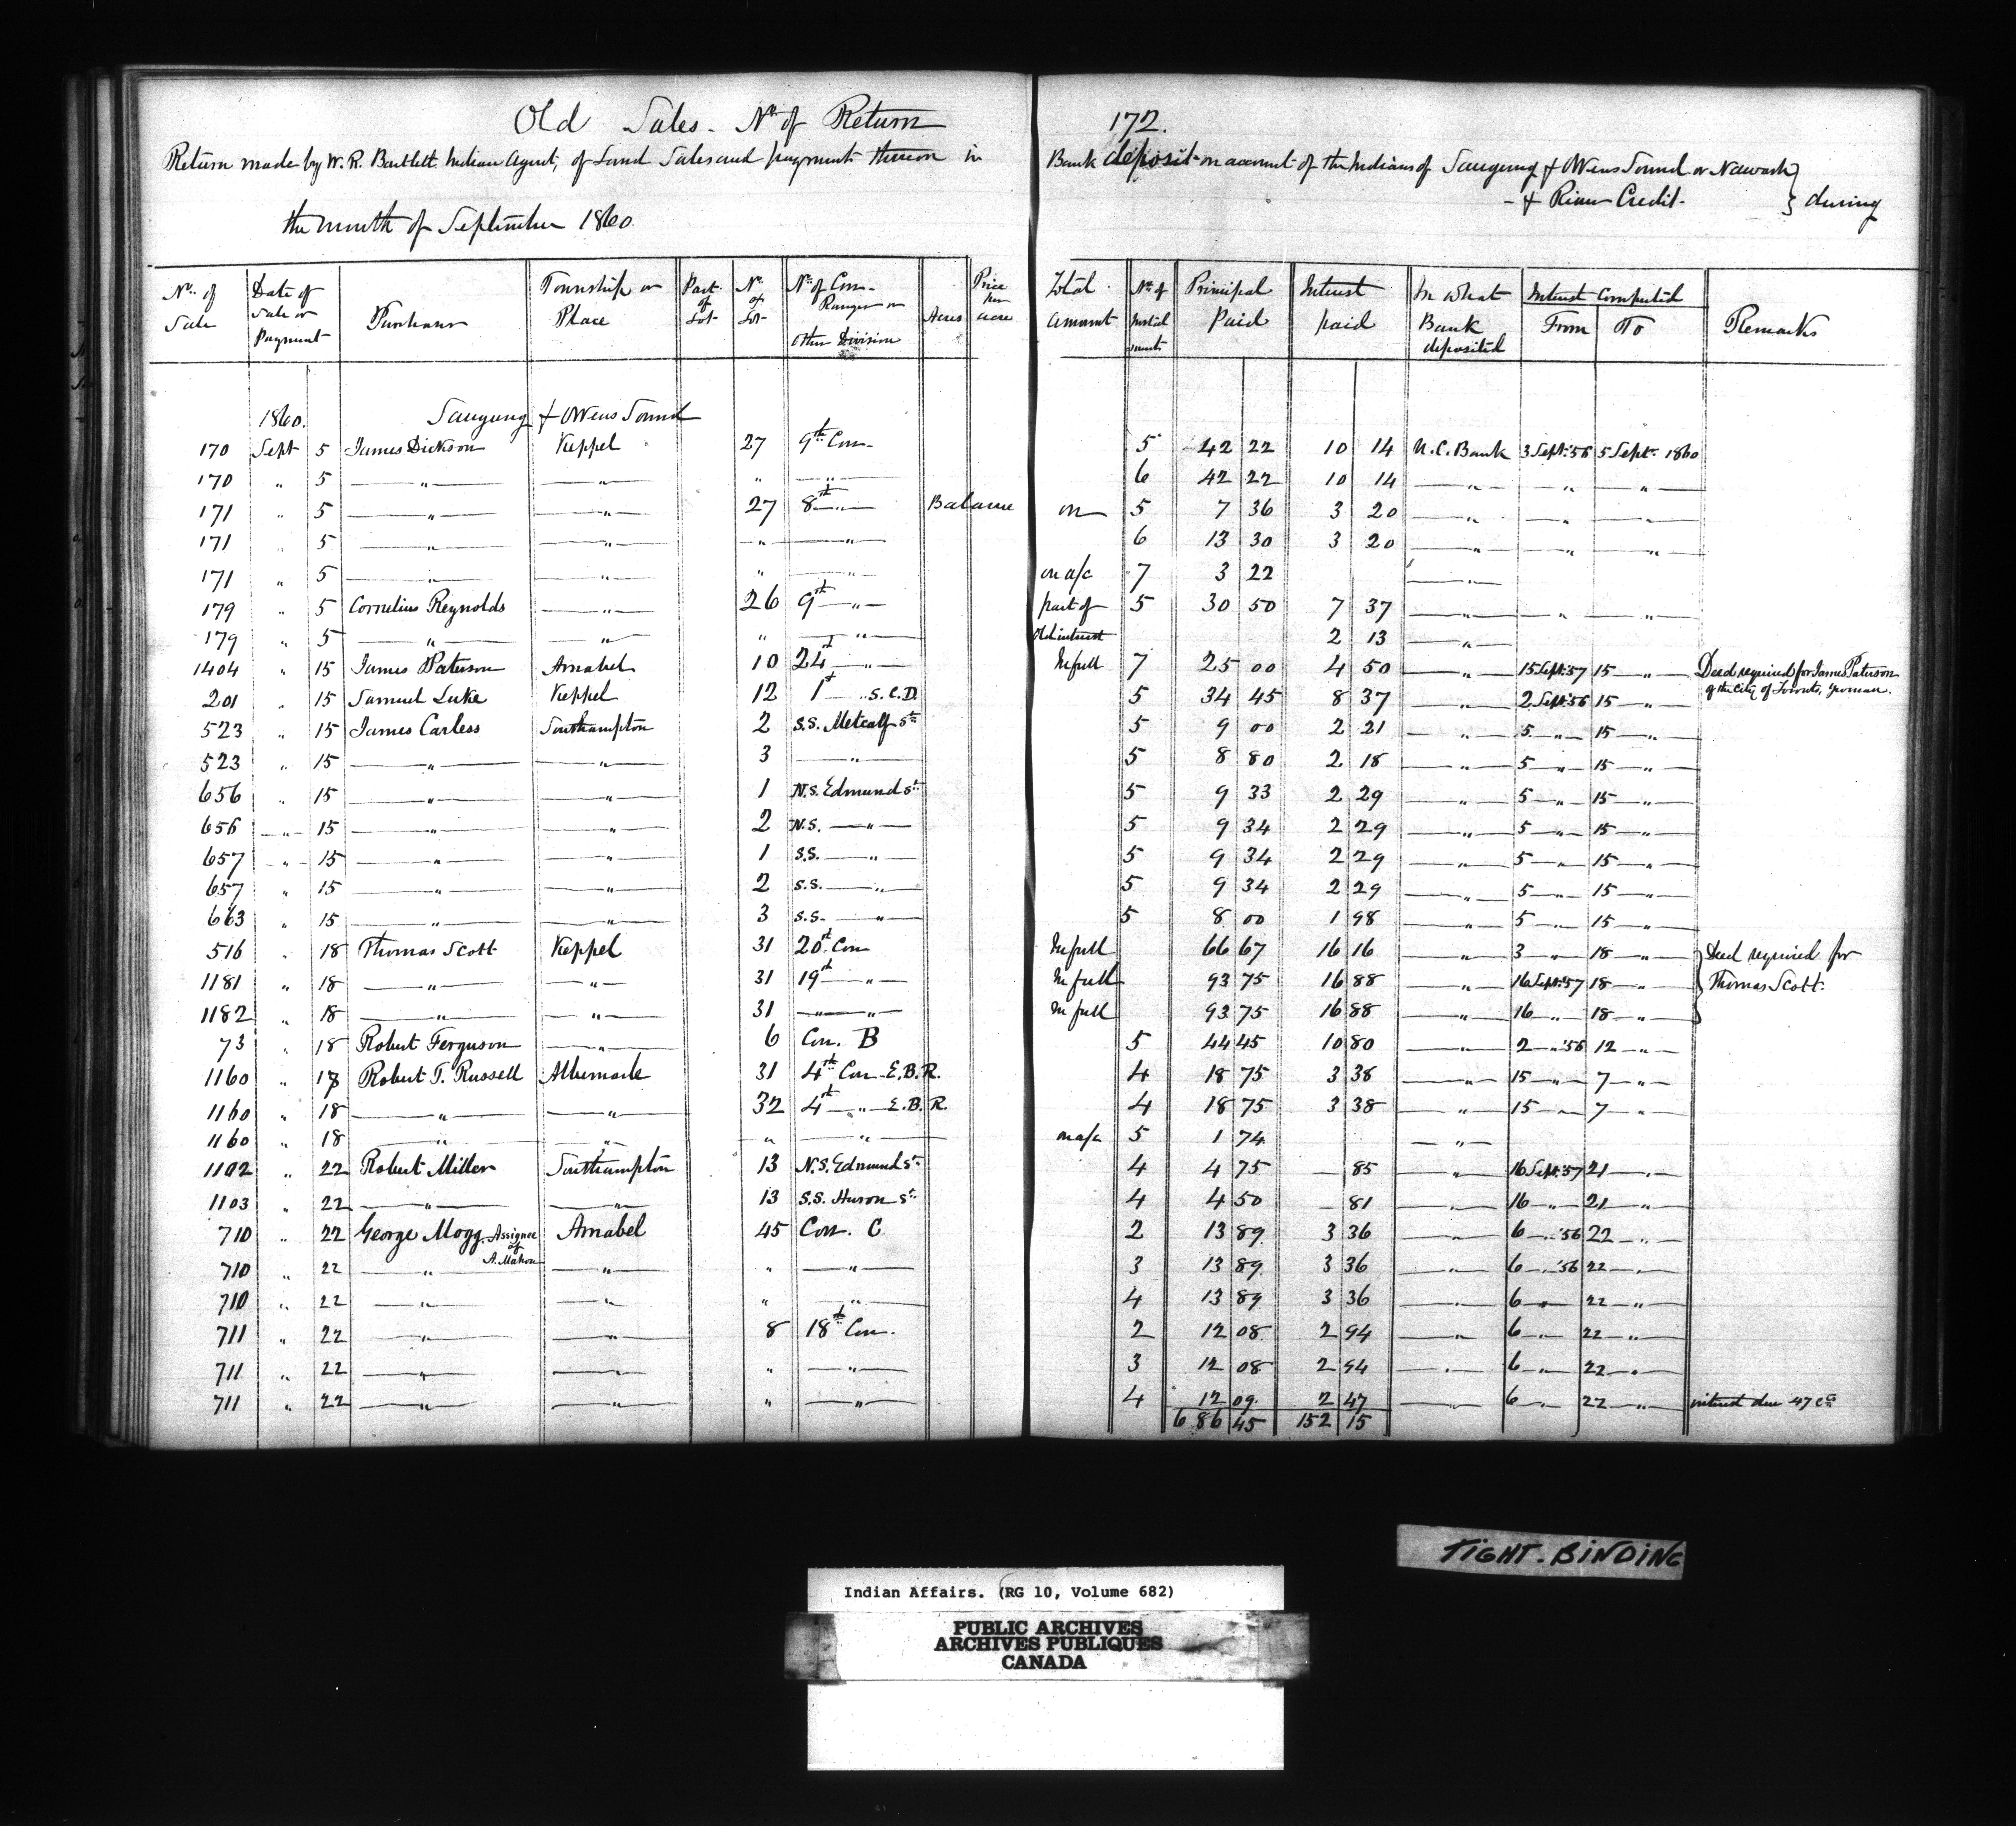 Old Sales - No. of Return 172.
Return made by W. R. Bartlett Indian Agent, of Land Sales and payments thereon in Bank deposit on account of the Indians of Saugeeng & Owens Sound or Nawash
- & River Credit - } during
the month of September 1860.
No. of Sale | Date of Sale or Payment | Purchaser | Township or Place | Part of Lot | No. of Lot | No. of Con. Ranges or Other Division | Acres | Price per acre | Total amount | No. of Instalments | Principal Paid | Interest paid | In what Bank deposited | Interest Computed From | To | Remarks
1860. Saugeeng & Owens Sound
170 Sept 5 James Dickson Keppel 27 9th Con- 5 42 22 10 14 U.C. Bank 3 Sept. '56 5 Sept. 1860
170 " 5 " " " " 6 42 22 10 14 " " "
171 " 5 " " 27 8th " Balance on 5 7 36 3 20 " " "
171 " 5 " " " " 6 13 30 3 20 " " "
171 " 5 " " " " on a/c 7 3 22 "
179 " 5 Cornelius Reynolds " 26 9th " part of 5 30 50 7 37 " " "
179 " 5 " " " " Old interest 2 13 "
1404 " 15 James Paterson Amabel 10 24th " In full 7 25 00 4 50 " 15 Sept. 57 15 " Deed required for James Paterson
of the City of Toronto, yeoman.
201 " 15 Samuel Luke Keppel 12 1st " S.C.D. 5 34 45 8 37 " 2 Sept. 56 15 "
523 " 15 James Carless Southampton 2 S.S. Metcalf St. 5 9 00 2 21 " 5 " 15 "
523 " 15 " " 3 " 5 8 80 2 18 " 5 " 15 "
656 " 15 " " 1 N.S. Edmund St. 5 9 33 2 29 " 5 " 15 "
656 " 15 " " 2 N.S. " 5 9 34 2 29 " 5 " 15 "
657 " 15 " " 1 S.S. " 5 9 34 2 29 " 5 " 15 "
657 " 15 " " 2 S.S. " 5 9 34 2 29 " 5 " 15 "
663 " 15 " " 3 S.S. " 5 8 00 1 98 " 5 " 15 "
516 " 18 Thomas Scott Keppel 31 20th Con In full 66 67 16 16 " 3 " 18 " } Deed required for
1181 " 18 " " 31 19th " In full 93 75 16 88 " 16 Sept. 57 18 " Thomas Scott.
1182 " 18 " " 31 " " In full 93 75 16 88 " 16 " 18 "
73 " 18 Robert Ferguson " 6 Con. B 5 44 45 10 80 " 2 " '56 12 "
1160 " 18 Robert T. Russell Albemarle 31 4th Con E.B.R. 4 18 75 3 38 " 15 " 7 "
1160 " 18 " " 32 4th " E.B.R. 4 18 75 3 38 " 15 " 7 "
1160 " 18 " " " " on a/c 5 1 74 "
1102 " 22 Robert Miller Southampton 13 N.S. Edmund St. 4 4 75 — 85 " 16 Sept. '57 21 "
1103 " 22 " " 13 S.S. Huron St. 4 4 50 — 81 " 16 " 21 "
710 " 22 George Mogg. Assignee of A. Mahon Amabel 45 Con. C 2 13 89 3 36 " 6 " '56 22 "
710 " 22 " " " " 3 13 89 3 36 " 6 " '56 22 "
710 " 22 " " " " 4 13 89 3 36 " 6 " 22 "
711 " 22 " " 8 18th Con. 2 12 08 2 94 " 6 " 22 "
711 " 22 " " " " 3 12 08 2 94 " 6 " 22 "
711 " 22 " " " " 4 12 09 2 47 " 6 " 22 " interest due 47 cts
686 45 152 15
TIGHT-BINDING
Indian Affairs. (RG 10, Volume 682)
PUBLIC ARCHIVES
ARCHIVES PUBLIQUES
CANADA